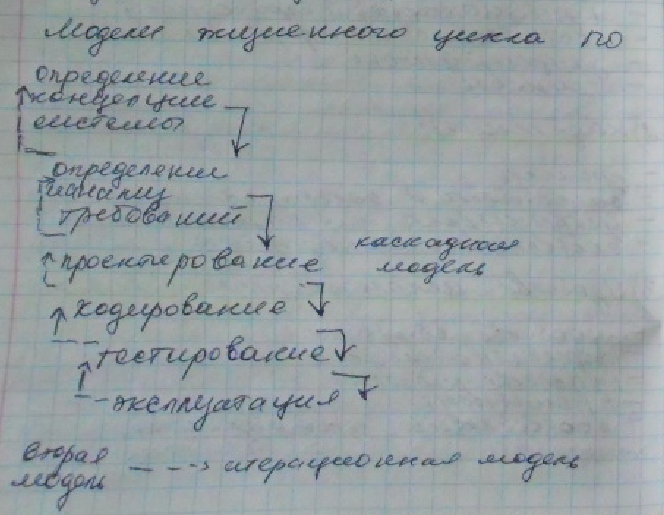 Модели жизненного цикла ПО
определение
концепции
системы
определении
и анализ
требований
проектирование
каскадная
модель
кодирование
тестирование
эксплуатация
вторая
модель ---> итерационная модель